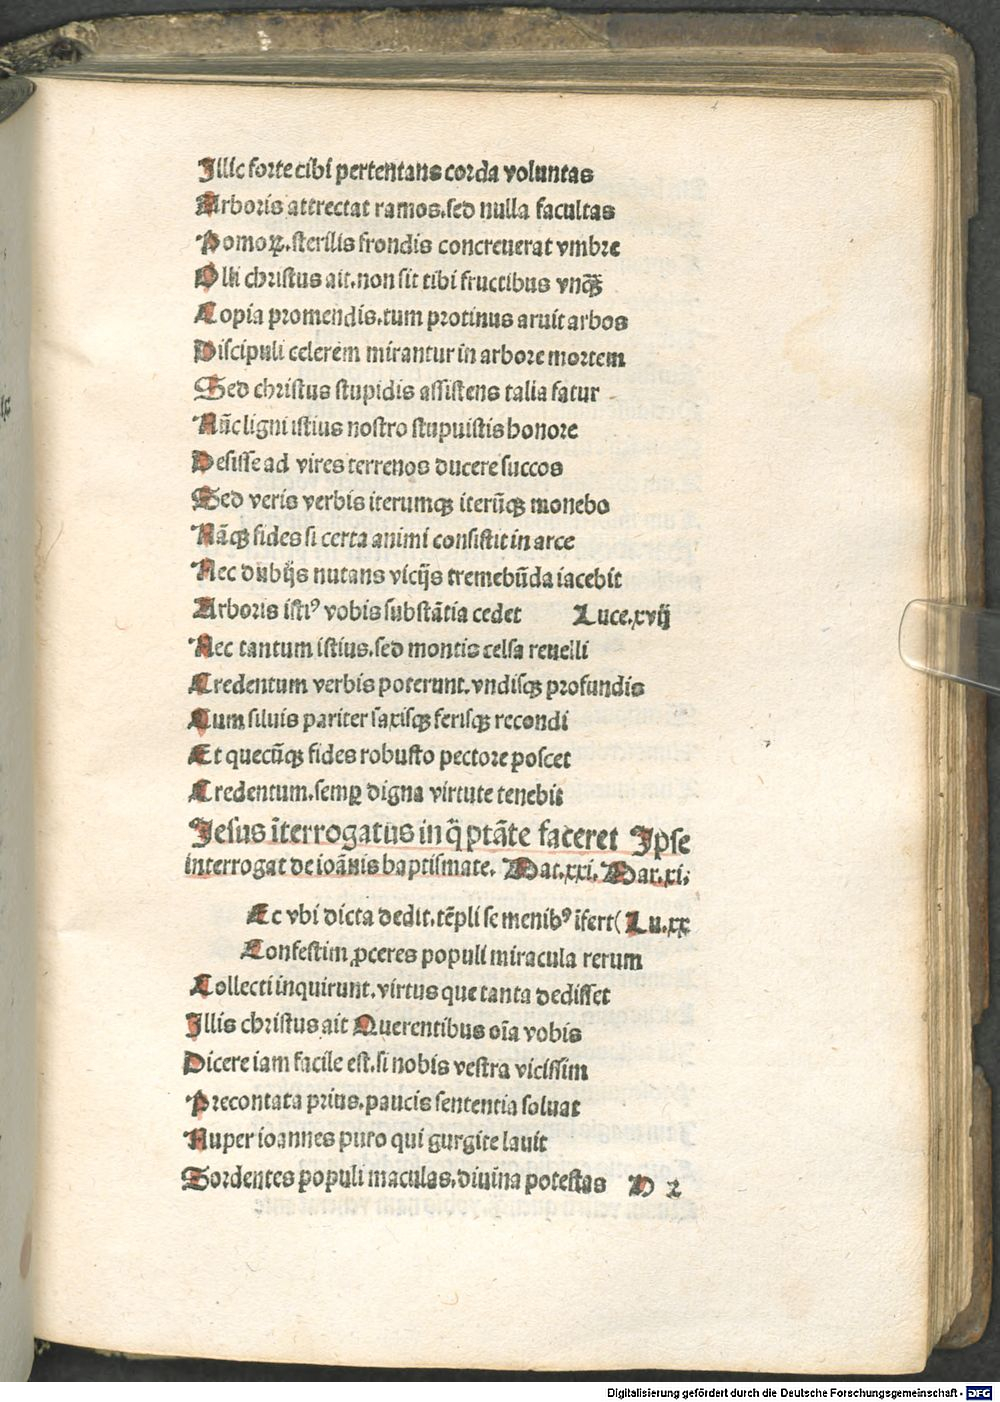 Illic forte cibi pertentans corda voluntas
Arboris attrectat ramos.sed nulla facultas
Pomoꝝ.sterilis frondis concreuerat vmbre
Olli christus ait.non sit tibi fructibus vnq̄ꝫ
Copia promendis.tum protinus aruit arbos
Discipuli celerem mirantur in arbore mortem
Sed christus stupidis assistens talia fatur
Nūc ligni istius nostro stupuistis honore
Desisse ad vires terrenos ducere succos
Sed veris verbis iterumqꝫ iterūqꝫ monebo
Nāqꝫ fides si certa animi consistit in arce
Nec dubijs nutans vicijs tremebūda iacebit
Arboris istiꝰ vobis substātia cedet Luce.xvij
Nec tantum istius.sed montis celsa reuelli
Credentum verbis poterunt.vndisqꝫ profundis
Cum siluis pariter saxisqꝫ ferisqꝫ recondi
Et quecūqꝫ fides robusto pectore poscet
Credentum.semꝑ digna virtute tenebit
Jesus īterrogatus in q̄ ptāte faceret Ipse
interrogat de ioānis baptismate. Mat.xxi. Mar.xi.
Ec vbi dicta dedit.tēpli se menibꝰ īfert( Lu.xx
Confestim ꝓceres populi miracula rerum
Collecti inquirunt.virtus que tanta dedisset
Illis christus ait Querentibus oīa vobis
Dicere iam facile est.si nobis vestra vicissim
Precontata prius.paucis sententia soluat
Nuper ioannes puro qui gurgite lauit
Sordentes populi maculas.diuina potestas D 2
Digitalisierung gefördert durch die Deutsche Forschungsgemeinschaft - DFG